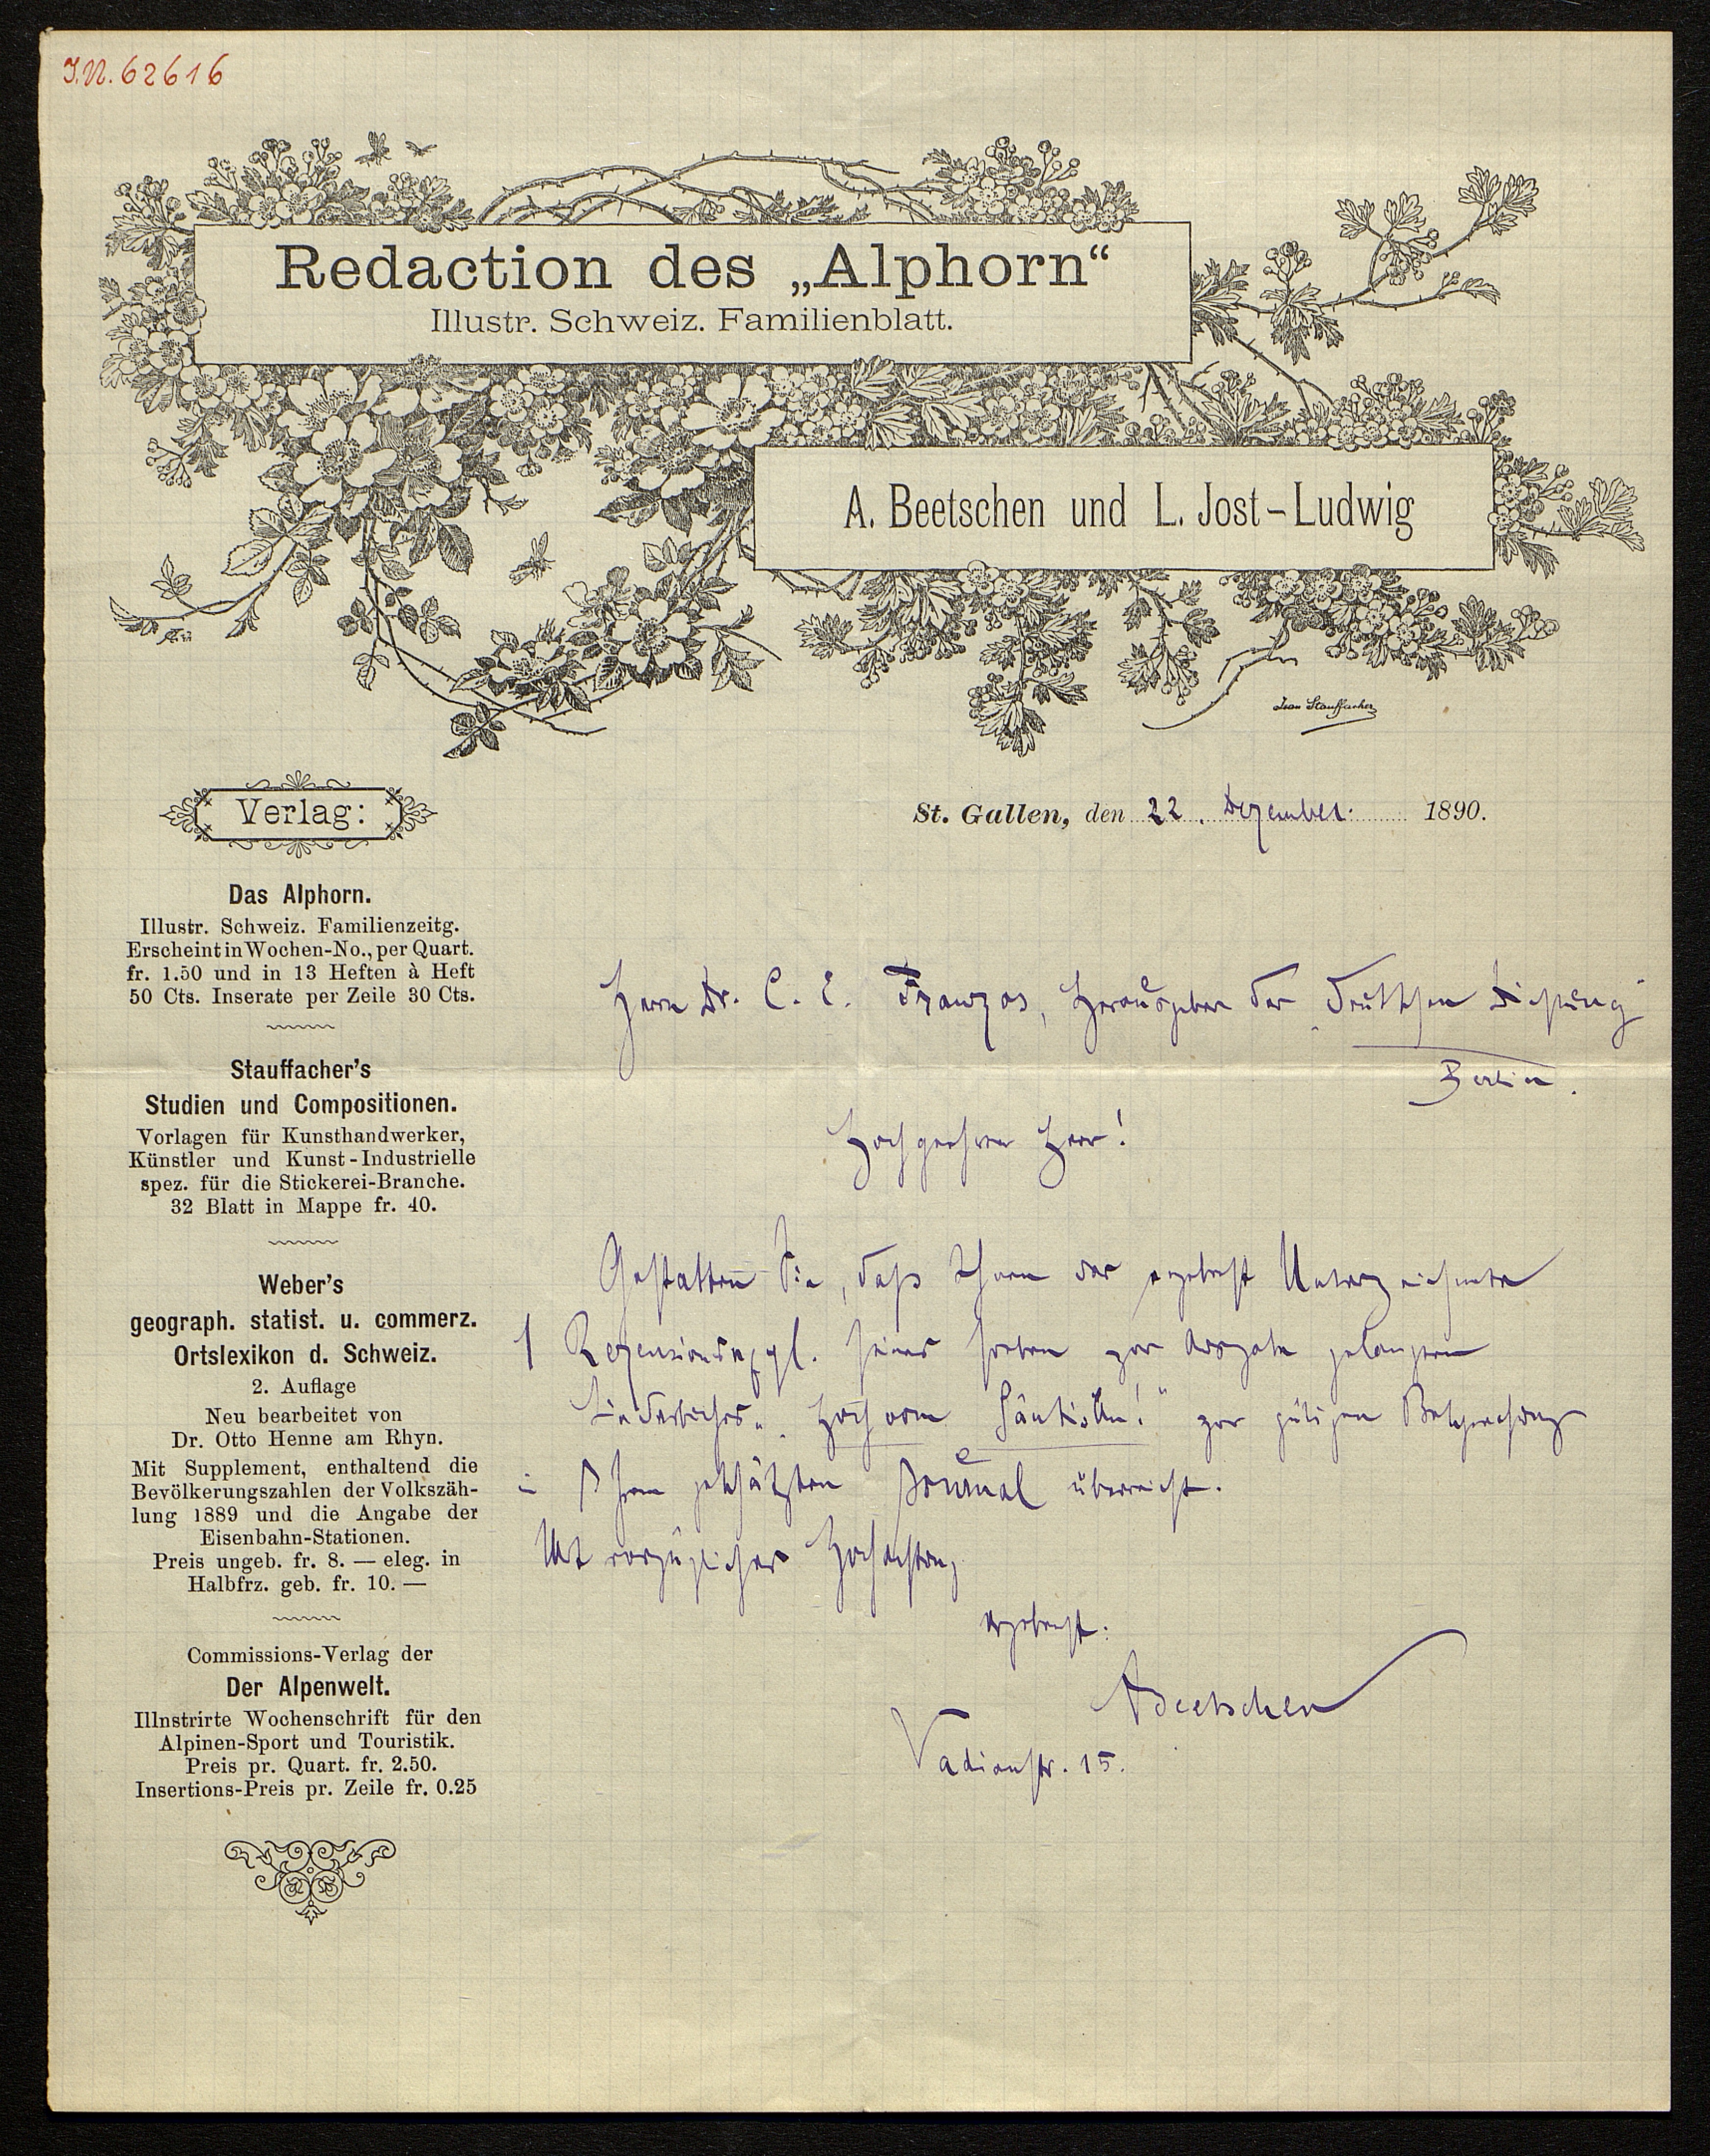 I.N. 62616
Redaction des „Alphorn“
Illustr. Schweiz. Familienblatt.
A. Beetschen und L. Jost-Ludwig
Jean Stauffacher
Verlag:
St. Gallen, den 22. Dezember 1890.
Das Alphorn.
Illustr. Schweiz. Familienzeitg.
Erscheint in Wochen-No., per Quart.
fr. 1.50 und in 13 Heften à Heft
50 Cts. Inserate per Zeile 30 Cts.
Stauffacher's
Studien und Compositionen.
Vorlagen für Kunsthandwerker,
Künstler und Kunst-Industrielle
spez. für die Stickerei-Branche.
32 Blatt in Mappe fr. 40.
Weber's
geograph. statist. u. commerz.
Ortslexikon d. Schweiz.
2. Auflage
Neu bearbeitet von
Dr. Otto Henne am Rhyn.
Mit Supplement, enthaltend die
Bevölkerungszahlen der Volkszäh-
lung 1889 und die Angabe der
Eisenbahn-Stationen.
Preis ungeb. fr. 8. — eleg. in
Halbfrz. geb. fr. 10. —
Commissions-Verlag der
Der Alpenwelt.
Illnstrirte Wochenschrift für den
Alpinen-Sport und Touristik.
Preis pr. Quart. fr. 2.50.
Insertions-Preis pr. Zeile fr. 0.25
Herrn Dr. C. E. Franzos, Herausgeber der „Deutschen Dichtung“
Berlin.
Hochgeehrter Herr!
Gestatten Sie, daß Ihnen der ergebenst Unterzeichnete
1 Rezensionsexpl. seines soeben zur Ausgabe gelangten
Liederbuches „Hoch vom Säntis an!“ zur gütigen Besprechung
in Ihrem geschätzten Journal überreicht.
Mit vorzüglicher Hochachtung
ergebenst:
A Beetschen
Vadianstr. 15.